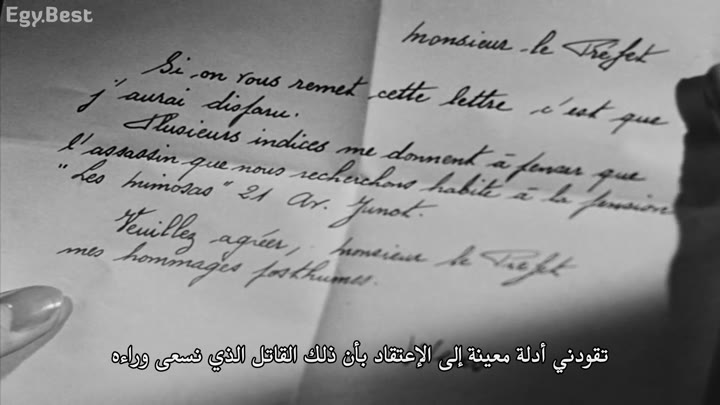 Egy.Best
Monsieur le Préfet
Si on vous remet cette lettre c'est que
j'aurai disparu.
Plusieurs indices me donnent à penser que
l'assassin que nous recherchons habite à la pension
"Les Mimosas" 21 Av. Junot.
Veuillez agréer, monsieur le Préfet
mes hommages posthumes.
تقودني أدلة معينة إلى الإعتقاد بأن ذلك القاتل الذي نسعى وراءه